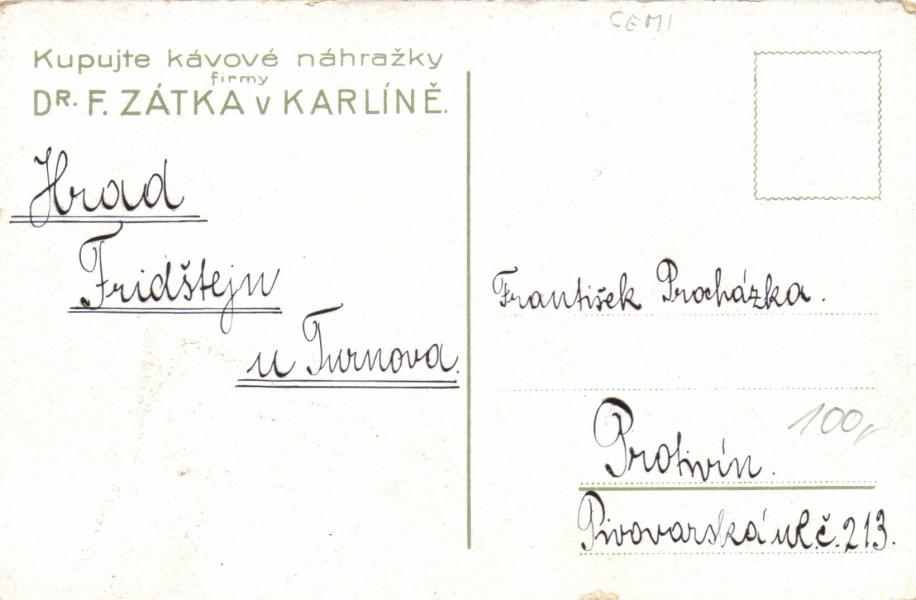 ČEMI
Kupujte kávové náhražky
firmy
DR. F. ZÁTKA v KARLÍNĚ.
Hrad
Fridštejn
u Turnova.
František Procházka.
100,-
Protivín.
Pivovarská ul. č. 213.